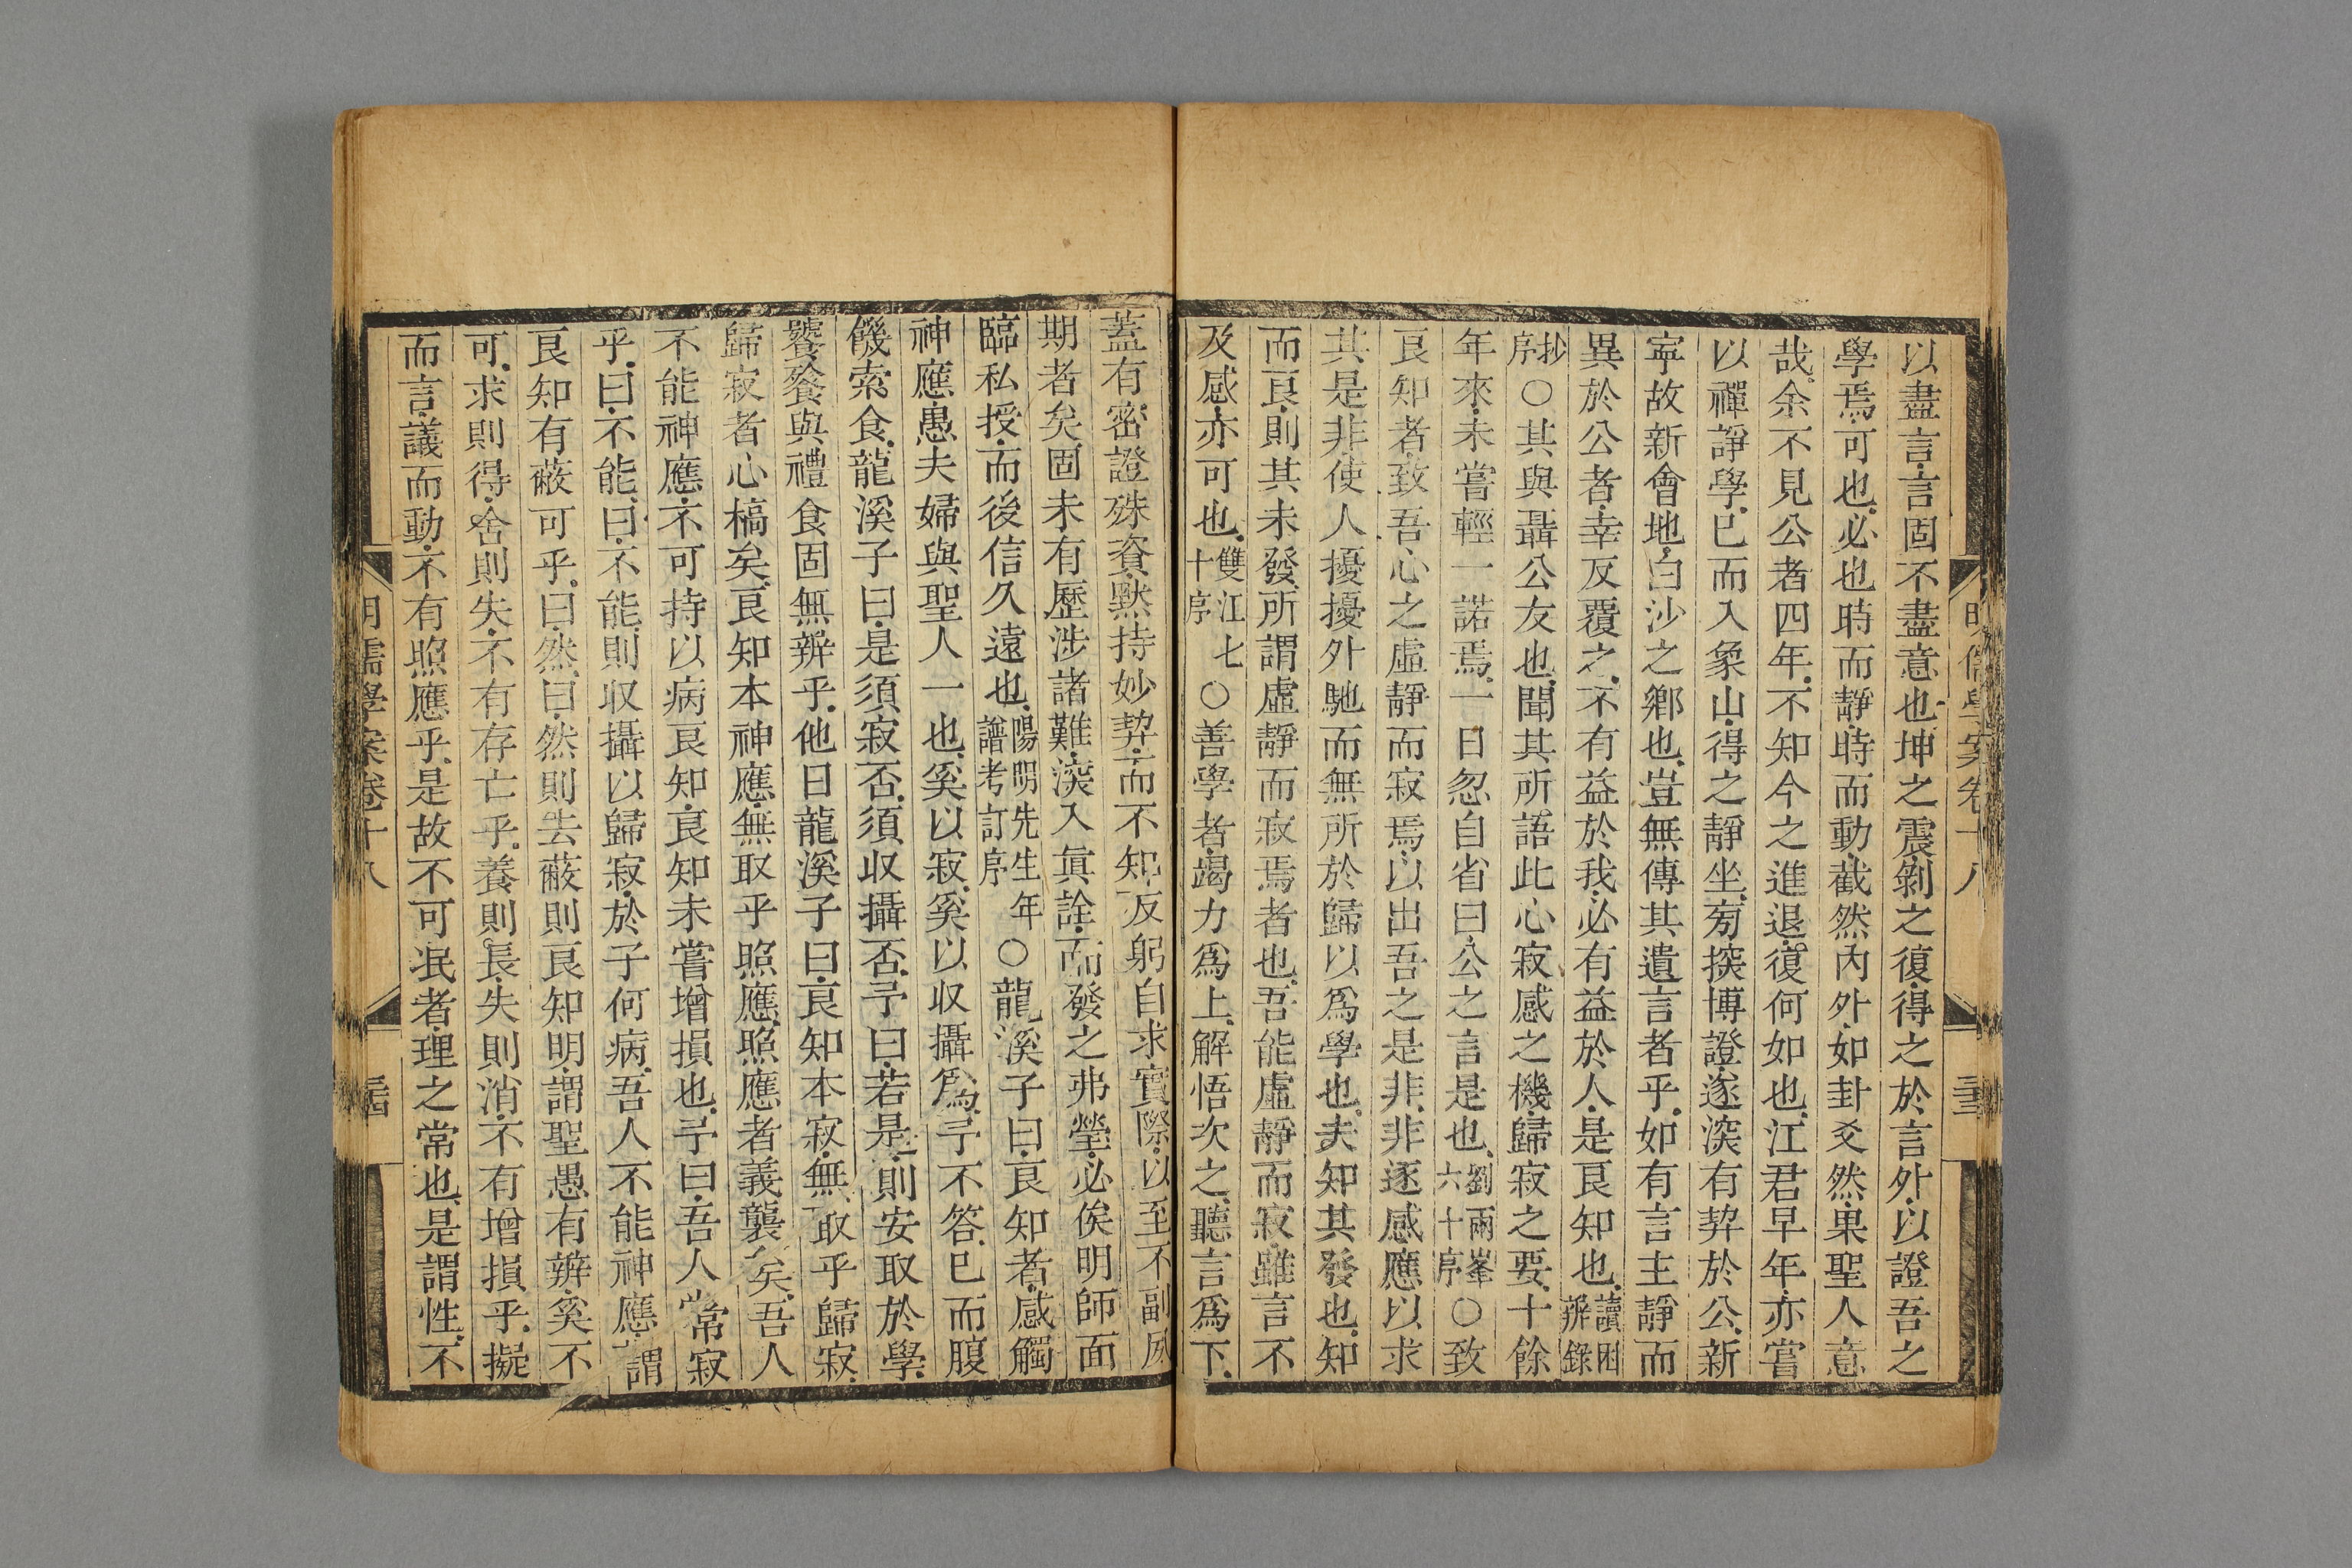 明儒學案卷十八
以盡言言固不盡意也坤之震剝之復得之於言外以證吾之
學焉可也必也時而靜時而動截然內外如卦爻然果聖人意
哉余不見公者四年不知今之進退復何如也江君早年亦嘗
以禪諍學已而入象山得之靜坐旁探博證遂深有契於公新
寧故新會地白沙之鄉也豈無傳其遺言者乎如有言主靜而
異於公者幸反覆之不有益於我必有益於人是良知也讀困辨錄
抄序○其與聶公友也聞其所語此心寂感之機歸寂之要十餘
年來未嘗輕一諾焉一日忽自省曰公之言是也劉兩峯六十序○致
良知者致吾心之虛靜而寂焉以出吾之是非非逐感應以求
其是非使人擾擾外馳而無所於歸以爲學也夫知其發也知
而良則其未發所謂虛靜而寂焉者也吾能虛靜而寂雖言不
及感亦可也雙江七十序○善學者竭力爲上解悟次之聽言爲下
蓋有密證殊資默持妙契而不知反躬自求實際以至不副夙
期者矣固未有歷涉諸難深入眞詮而發之弗瑩必俟明師面
臨私授而後信久遠也陽明先生年譜考訂序○龍溪子曰良知者感觸
神應愚夫婦與聖人一也奚以寂奚以收攝爲予不答已而腹
饑索食龍溪子曰是須寂否須收攝否予曰若是則安取於學
饕餮與禮食固無辨乎他日龍溪子曰良知本寂無取乎歸寂
歸寂者心槁矣良知本神應無取乎照應照應者義襲矣吾人
不能神應不可持以病良知良知未嘗增損也予曰吾人常寂
乎曰不能曰不能則收攝以歸寂於子何病吾人不能神應謂
良知有蔽可乎曰然曰然則去蔽則良知明謂聖愚有辨奚不
可求則得舍則失不有存亡乎養則長失則消不有增損乎擬
而言議而動不有照應乎是故不可泯者理之常也是謂性不
明儒學案卷十八